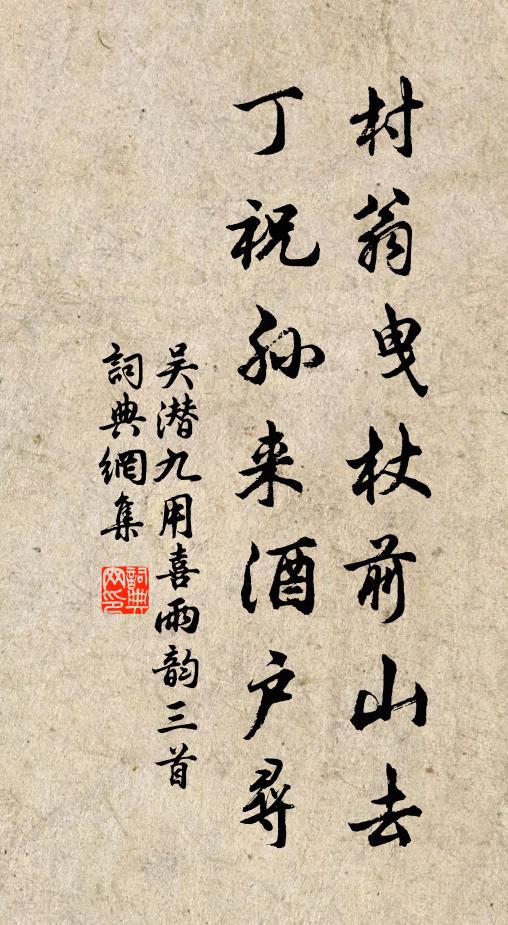 村翁曳杖前山去
丁祝孙来酒户尋
吴潜九用喜雨韵三首
詞典網集
詞典
网印